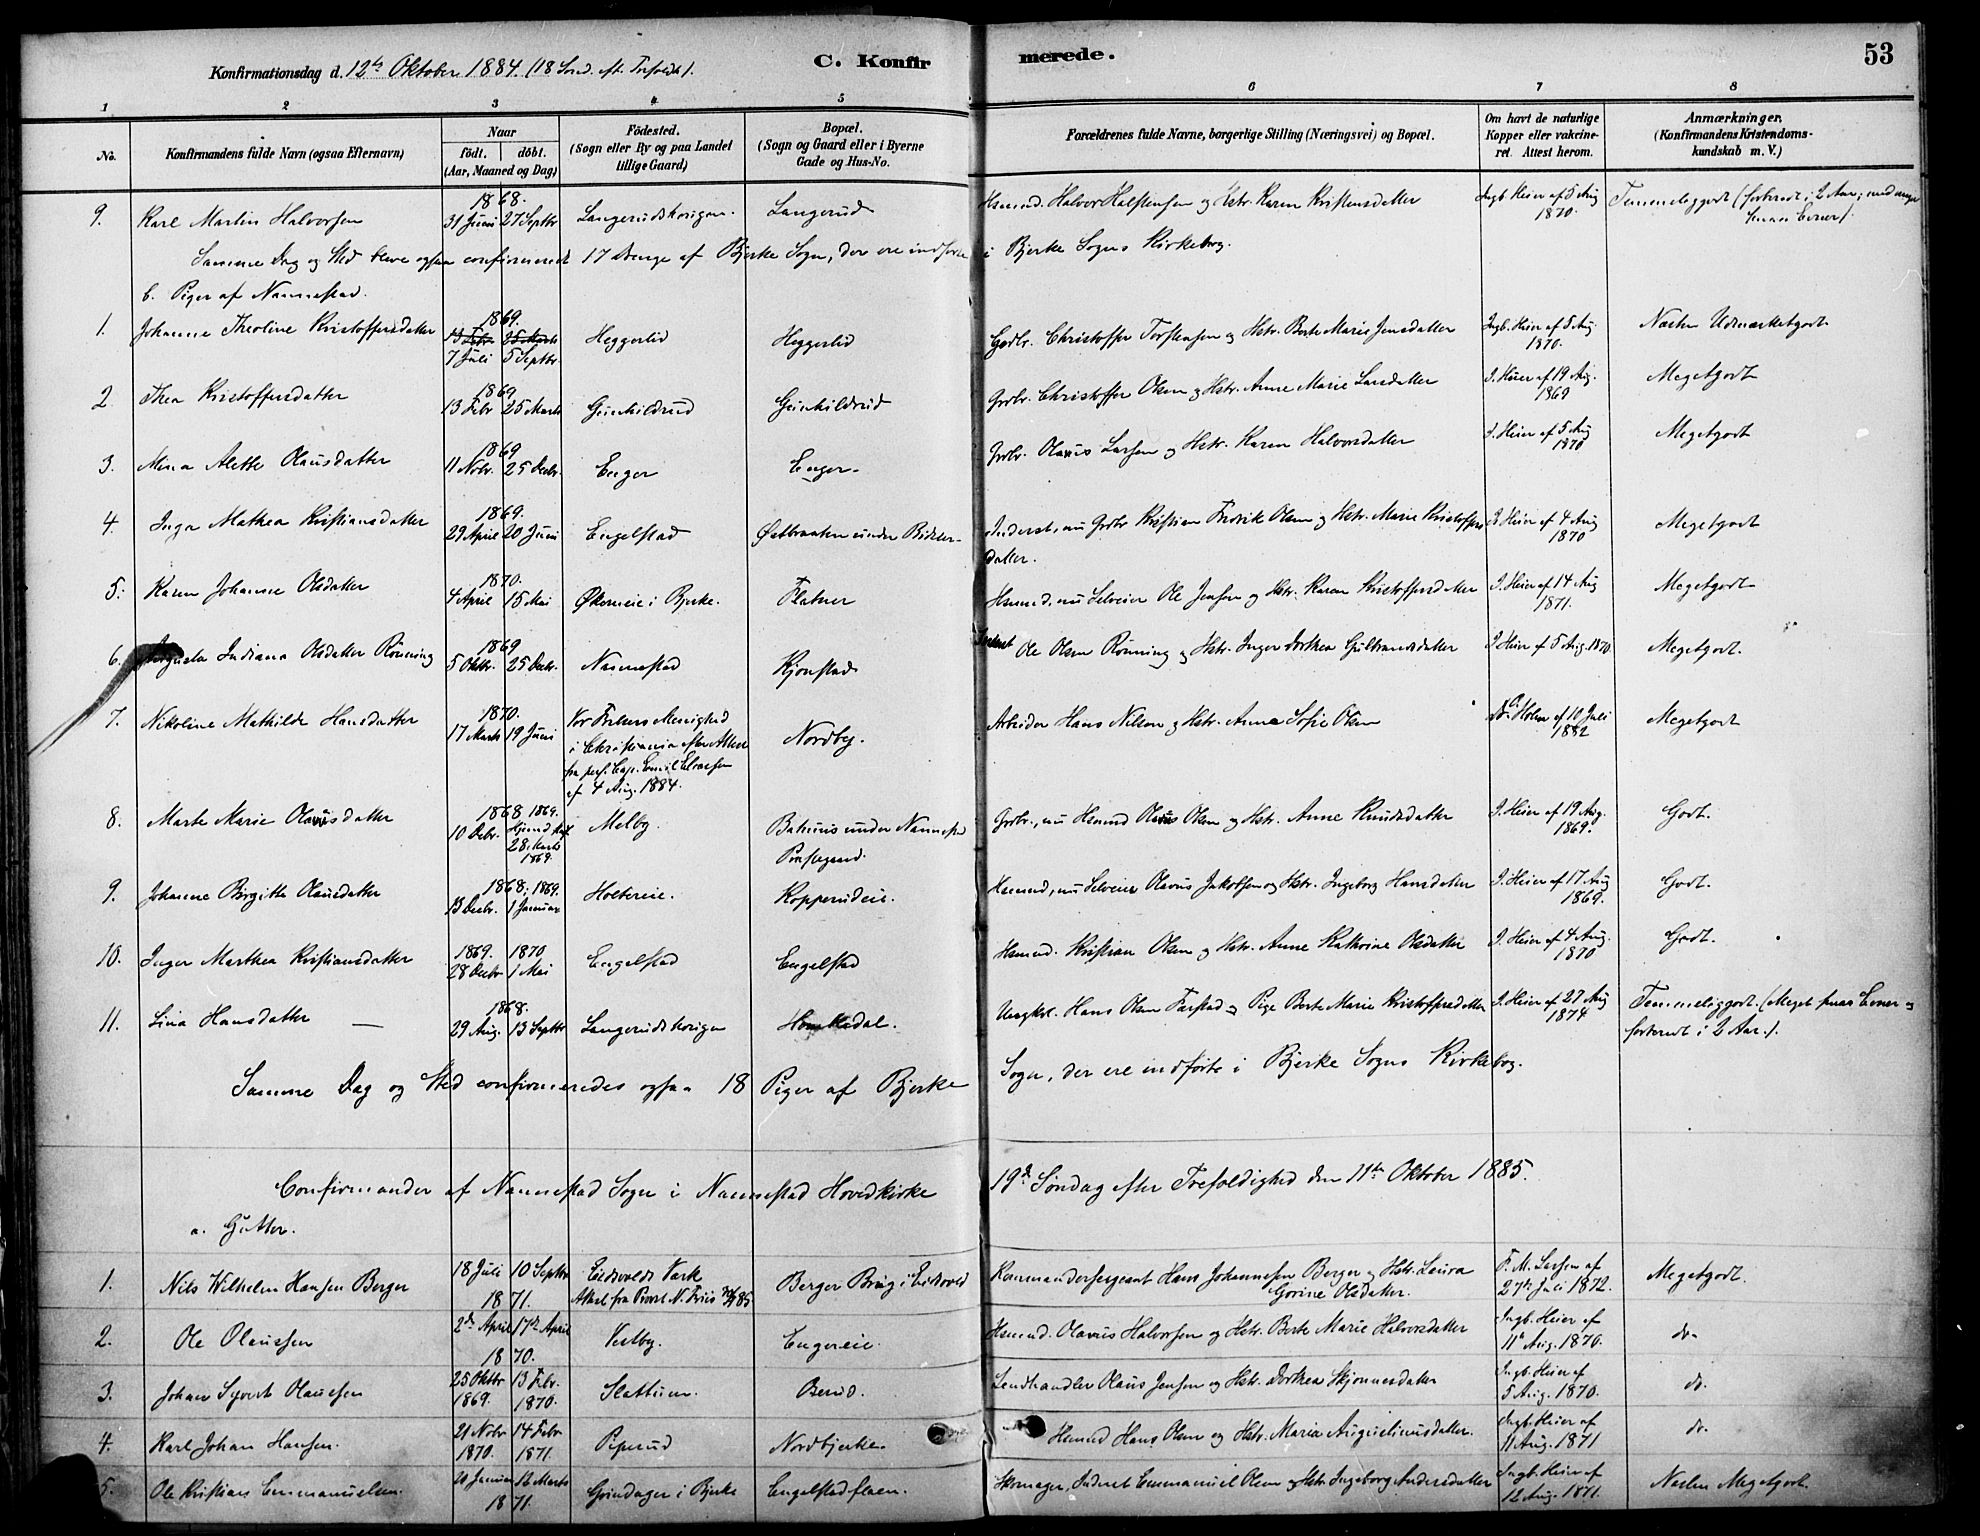 Konfirmationsdag d. 12te Oktober 1884. (18 Sønd. eft. Trefoldh.). C. Konfirmerede. 53
1 2 3 4 5 6 7 8
No. Konfirmandens fulde Navn (ogsaa Efternavn) Naar født. døbt. (Aar, Maaned og Dag) Födested. (Sogn eller By og paa Landet tillige Gaard) Bopæl. (Sogn og Gaard eller i Byerne Gade og Hus-No. Forældrenes fulde Navne, borgerlige Stilling (Næringsvei) og Bopæl. Om havt de naturlige Kopper eller vakcineret. Attest herom. Anmærkninger. (Konfirmandens Kristendomskundskab m. V.)
9. Karl Martin Halvorsen 1868. 31 Juni 27 Septbr Langerudskorigen. Langerud Hsmnd. Halvor Halstensen og Hstr. Karen Kristensdatter Ingb. Heier af 5 Aug 1870. Temmeliggodt
Samme Dag og Sted bleve ogsaa confirmeret 17 Drenge af Bjerke Sogn, der ere indførte i Bjerke Sogns Kirkebog.
b. Piger af Nannestad.
1. Johanne Theoline Kristoffersdatter 1869. 13 Febr 25 Marts 7 Juli 5 Septbr. Heggerlid Heggerlid Grdbr. Christoffer Torstensen og Hstr. Berte Marie Jensdatter Ingb. Heier af 5 Aug. 1870. Næsten Udmærketgodt
2. Thea Kristoffersdatter 1869 13 Febr 25 Marts Gunhildrud Gunhildrud Grdbr. Christoffer Olsen og Hstr. Anne Marie Larsdatter I. Heier af 19 Aug. 1869 Megetgodt
3. Mina Alette Olausdatter 1869 11 Novbr. 25 Decbr. Enger Enger. Grdbr. Olavus Larsen og Hstr. Karen Halvorsdatter I. Heier af 5 Aug 1870 Megetgodt
4. Inga Mathea Kristiansdatter 1869. 29 April 20 Juni Engelstad Østbraaten under Inderst, nu Grdbr Kristian Fredrik Olsen og Hstr. Marie Kristoffersdatter. I Heier af 4 Aug 1870 Megetgodt
5. Karen Johanne Olsdatter 1870. 4 April 15 Mai Økerneie i Bjerke. Flatner Hsmnd, nu Selveier Ole Jensen og Hstr. Karen Kristoffersdatter I. Heier af 14 Aug 1871. Megetgodt
6. Augusta Indiana Olsdatter Rønning 1869 5 Oktbr. 25 Decbr. Nannestad Kjønstad Inderst Ole Olsen Rønning og Hstr. Inger Dorthea Gulbrandsdatter I Heier af 5 Aug. 1870 Megetgodt.
7. Nikoline Mathilde Hansdatter 1870. 17 Marts 19 Juni Vor Frelsers Menighed i Christiania efter Attest fra pers. Cap. Emil Elvesen af 4 Aug. 1884. Nordby. Arbeider Hans Nilsen og Hstr. Anna Sofie Olsen Holm af 10 Juli 1882 Megetgodt
8. Marte Marie Olausdatter 1868 1869. 10 Decbr. Hjemd. 28. Marts 1869. Melby. under Nannestad Præstegaard. Grdbr., nu Hsmnd Olaus Olsen og Hstr. Anne Knudsdatter I. Heier af 19 Aug. 1869. Godt.
9. Johanne Birgitte Olausdatter 1868; 1869. 13 Decbr. 1 Januar Holtereie. Kopperudeie. Hsmnd, nu Selveier Olavus Jakobsen og Hstr. Ingeborg Hansdatter I. Heier af 17 Aug 1869. Godt.
10. Inger Marthea Kristiansdatter 1869. 1870 28 Decbr 1 Mai Engelstad Engelstad Hsmnd. Kristian Olsen og Hstr. Anne Kathrine Olsdatter I. Heier af 4 Aug. 1870 Godt.
11. Lina Hansdatter — 1868. 29 Aug. 13 Septbr Langerudskorigen Homledal. Ungkrl. Hans Olsen Farstad og Pige Berte Marie Kristoffersdatter I. Heier af 27 Aug 1874 Temmeliggodt. (Meget svage Evner og forberedt i 2 Aar.).
Samme Dag og Sted confirmeredes ogsaa 18 Piger af Bjerke Sogn, der ere indførte i Bjerke Sogns Kirkebog.
Confirmander af Nannestad Sogn i Nannestad Hovedkirke 19de Søndag efter Trefoldighed den 11te Oktober 1885.
a. Gutter.
1. Nils Wilhelm Hansen Berger 18 Juli 10 Septbr 1871. Eidsvolds Værk Attest fra Provst N. Friis 85 Berger Brug i Eidsvold Kommandersergeant Hans Johannesen Berger og Hstr. Laura Gorine Olsdatter. F. M. Larsen af 27de Juli 1872. Megetgodt.
2. Ole Olaussen 2de April 17de April 1870. Vestby. Engereie. Hsmnd. Olavus Halvorsen og Hstr. Berte Marie Halvorsdatter Ingb. Heier af 11te Aug. 1870. do.
3. Johan Sigvart Olaussen 25 Oktbr 1869. 13 Febr. 1870. Slattum. Berud. Landhandler Olaus Jensen og Hstr. Dorthea Skjønnesdatter Ingb. Heier af 5 Aug. 1870. do.
4. Karl Johan Hansen. 21 Novbr 1870. 14 Febr 1871. Piperud Nordbjerke. Hsmnd Hans Olsen og Hstr. Maria Augustinusdatter. Ingb. Heier af 11 Aug. 1871 do.
5. Ole Kristian Emmanuelsen. 20 Januar 12 Marts 1871. Grindager i Bjerke Engelstadflaen. Skomager, Inderst Emmanuel Olsen og Hstr. Ingeborg Andersdatter Ingb. Heier af 12 Aug. 1871. Næsten Megetgodt.